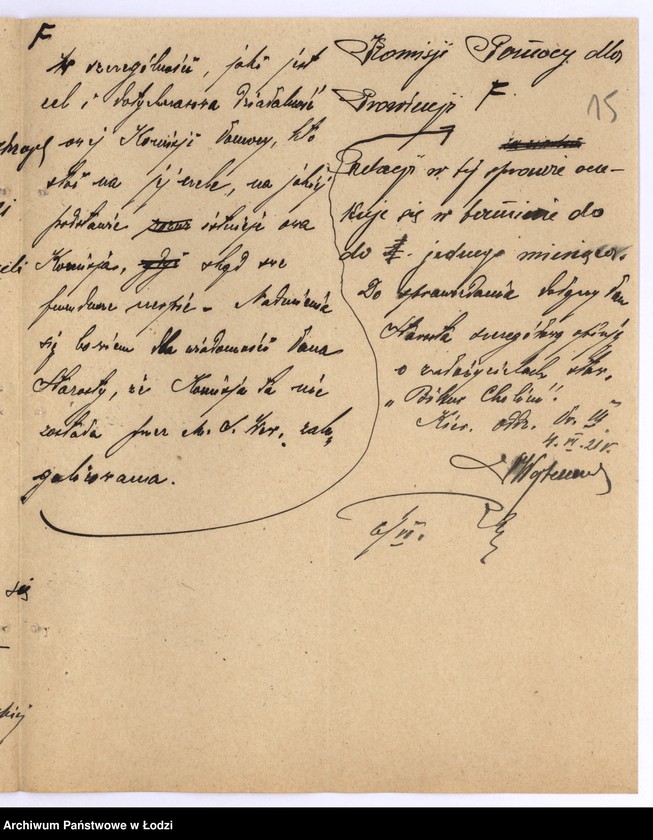 F
W szczególności, jaki jest
cel i dotychczasowa działalność
owej Komisji Pomocy, kto
stoi na jej czele, na jakiej
podstawie istnieje owa
Komisja, skąd swe
fundusze czerpie. Nadmienia
się bowiem dla wiadomości Pana
Starosty, że Komisja ta nie
została przez M. S. Wew. zale-
galizowana.
Komisji Pomocy dla
Prowincji F.
15
Relacji w tej sprawie ocze-
kuje się w terminie do
do jednego miesiąca.
Do sprawozdania dołączy Pan
Starosta szczegółową opinję
o założycielach stow.
„Bikur Cholim".
Kier. oddz.
4.VI.21 r.
6/VI.
się
Archiwum Państwowe w Łodzi